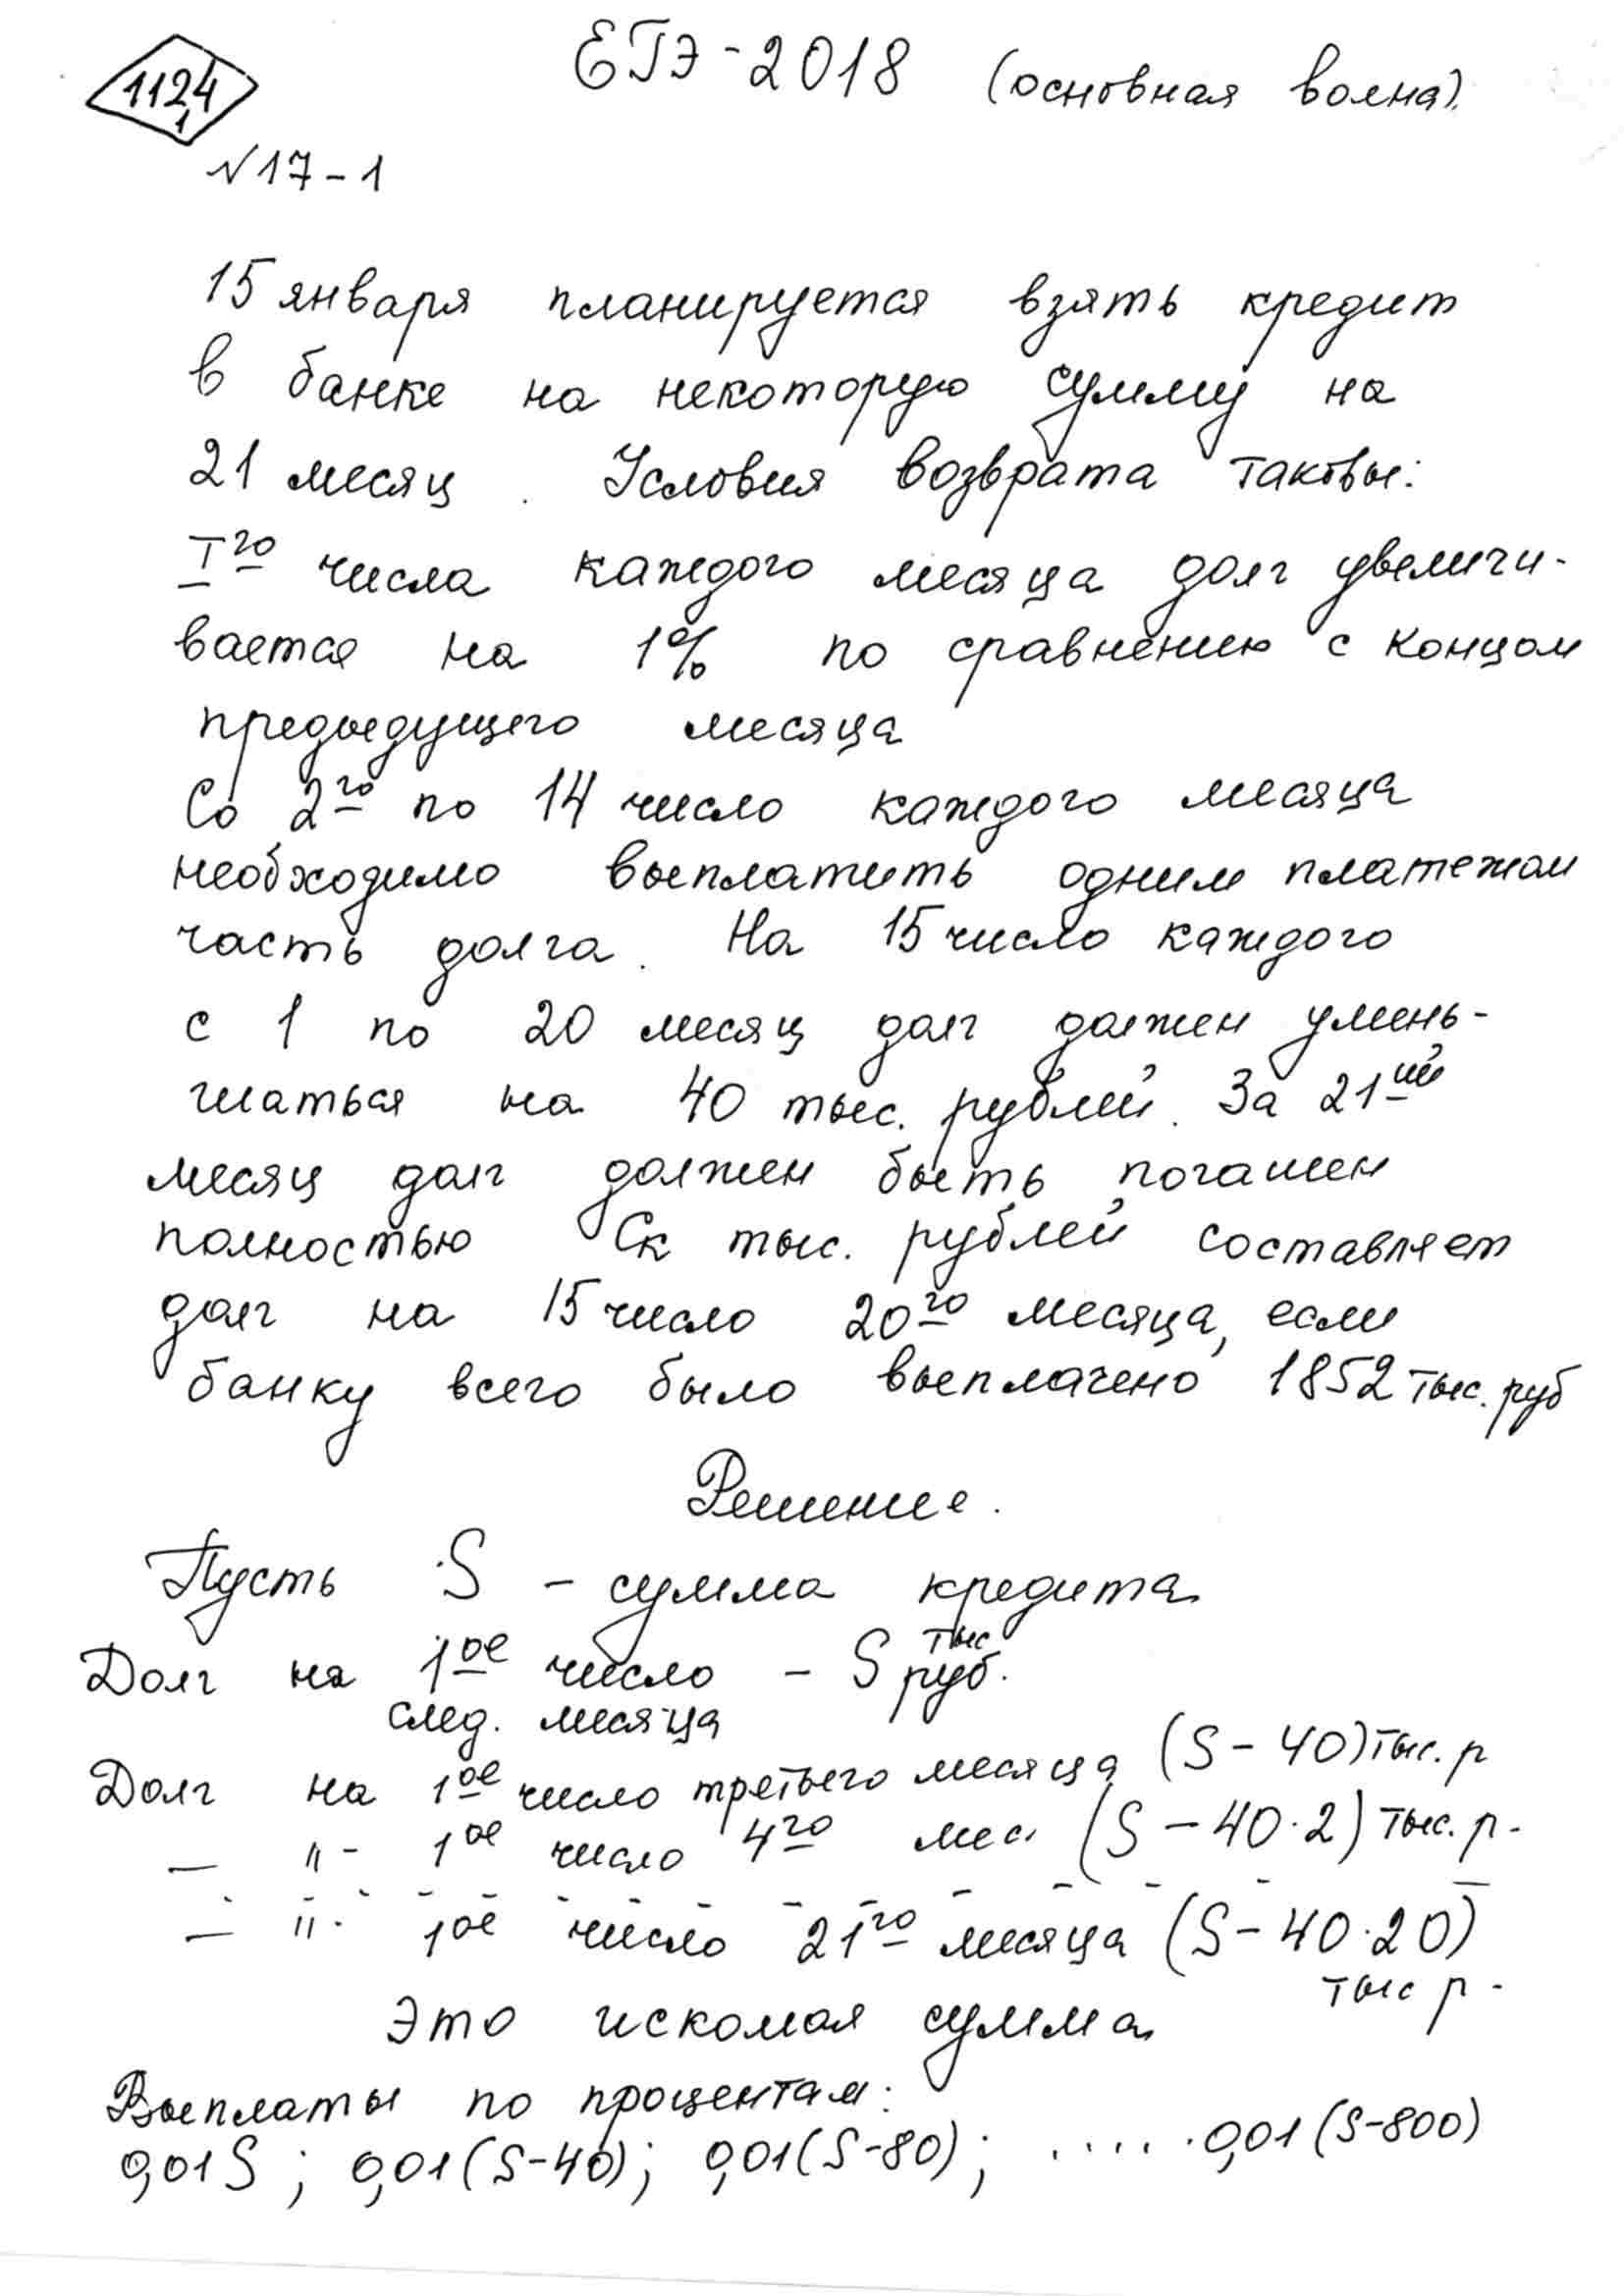 ЕГЭ-2018 (основная волна).
1124
1
№17-1
15 января планируется взять кредит
в банке на некоторую сумму на
21 месяц. Условия возврата таковы:
I го числа каждого месяца долг увеличи-
вается на 1% по сравнению с концом
предыдущего месяца
Со 2го по 14 число каждого месяца
необходимо выплатить одним платежом
часть долга. На 15 число каждого
с 1 по 20 месяц долг должен умень-
шаться на 40 тыс. рублей. За 21ый
месяц долг должен быть погашен
полностью Ск тыс. рублей составляет
долг на 15 число 20го месяца, если
банку всего было выплачено 1852 тыс. руб
Решение.
Пусть S - сумма кредита
Долг на 1ое число - S тыс руб.
след. месяца
Долг на 1ое число третьего месяца (S-40) тыс. р
— " - 1ое число 4го мес. (S-40·2) тыс. р.
— " - 1ое число 21го месяца (S-40·20)
тыс р.
Это искомая сумма
Выплаты по процентам:
0,01S; 0,01(S-40); 0,01(S-80); ..... 0,01(S-800)